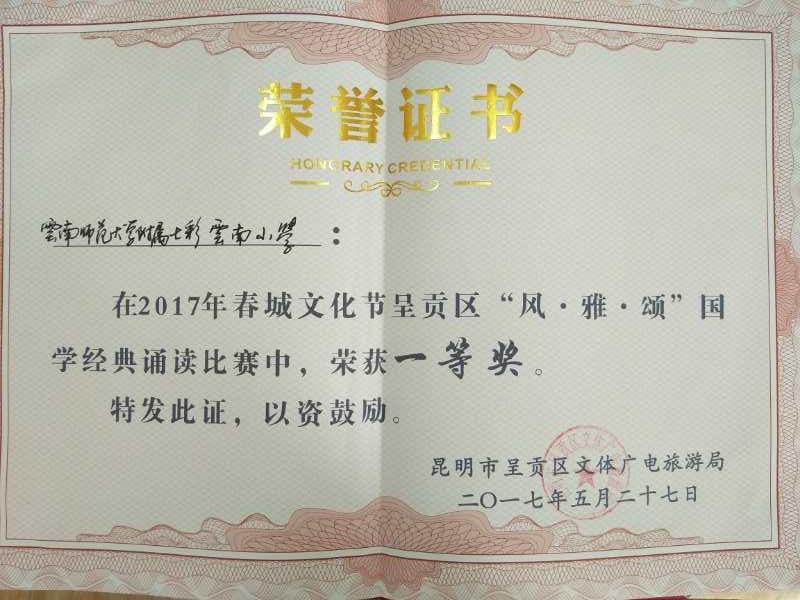 荣誉证书
HONGRARY CREDENTIAL
雲南师范大学附属七彩雲南小學：
在2017年春城文化节呈贡区“风·雅·颂”国
学经典诵读比赛中，荣获一等奖。
特发此证，以资鼓励。
昆明市呈贡区文体广电旅游局
二〇一七年五月二十七日